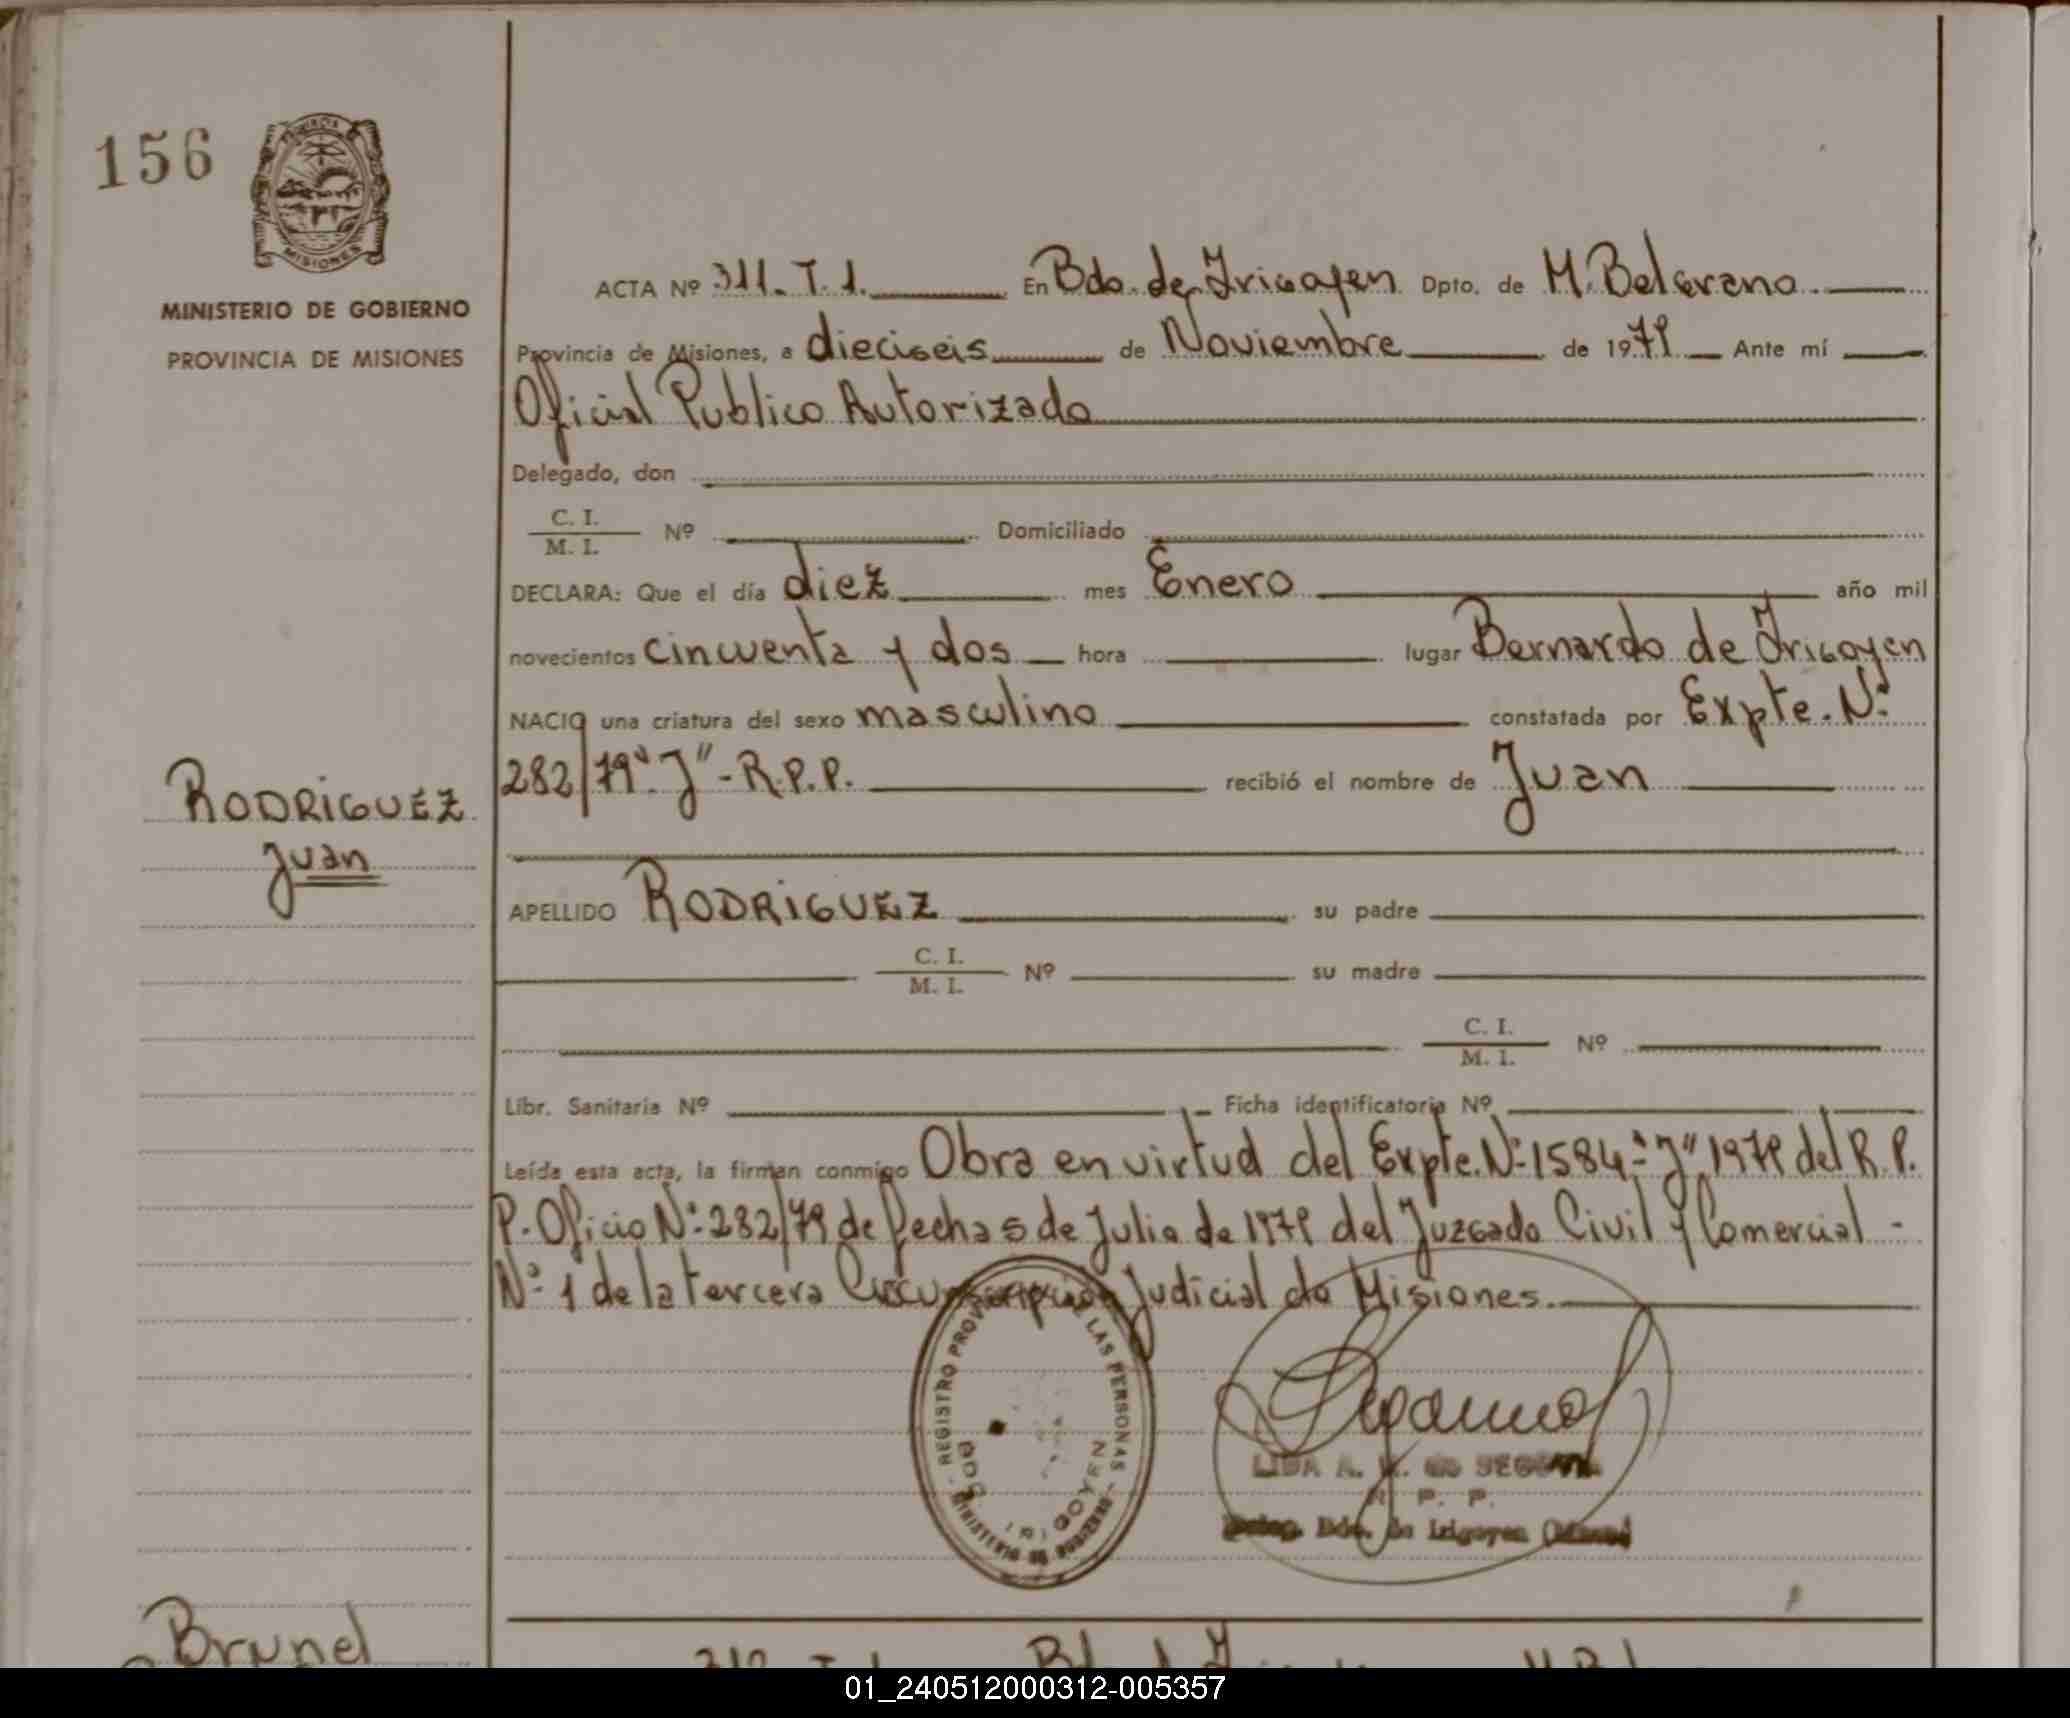 156
PROVINCIA
MISIONES
MINISTERIO DE GOBIERNO
PROVINCIA DE MISIONES
ACTA Nº 311. T. 1. En Bdo. de Irigoyen Dpto. de M. Belgrano.
Provincia de Misiones, a dieciseis de Noviembre de 1979 Ante mí
Oficial Publico Autorizado
Delegado, don
C. I.
M. I. Nº Domiciliado
DECLARA: Que el día diez mes Enero año mil
novecientos cincuenta y dos hora lugar Bernardo de Irigoyen
NACIO una criatura del sexo masculino constatada por Expte. Nº
282/79 "J" - R.P.P. recibió el nombre de Juan
RODRIGUEZ
Juan
APELLIDO RODRIGUEZ su padre
C. I.
M. I. Nº su madre
C. I.
M. I. Nº
Libr. Sanitaria Nº Ficha identificatoria Nº
Leída esta acta, la firman conmigo Obra en virtud del Expte. Nº 1584 - "J" 1979 del R. P.
P. Oficio Nº 282/79 de fecha 5 de Julio de 1979 del Juzgado Civil y Comercial -
Nº 1 de la tercera Circunscripción Judicial de Misiones.
REGISTRO PROVINCIAL DE LAS PERSONAS
MINISTERIO DE GOBIERNO
BDO. DE IRIGOYEN
LIDA A. de SEGOVIA
R. P. P.
Bdo. de Irigoyen
Brunel
312 T. 1 Bdo. de Irigoyen M. Bel
01_240512000312-005357